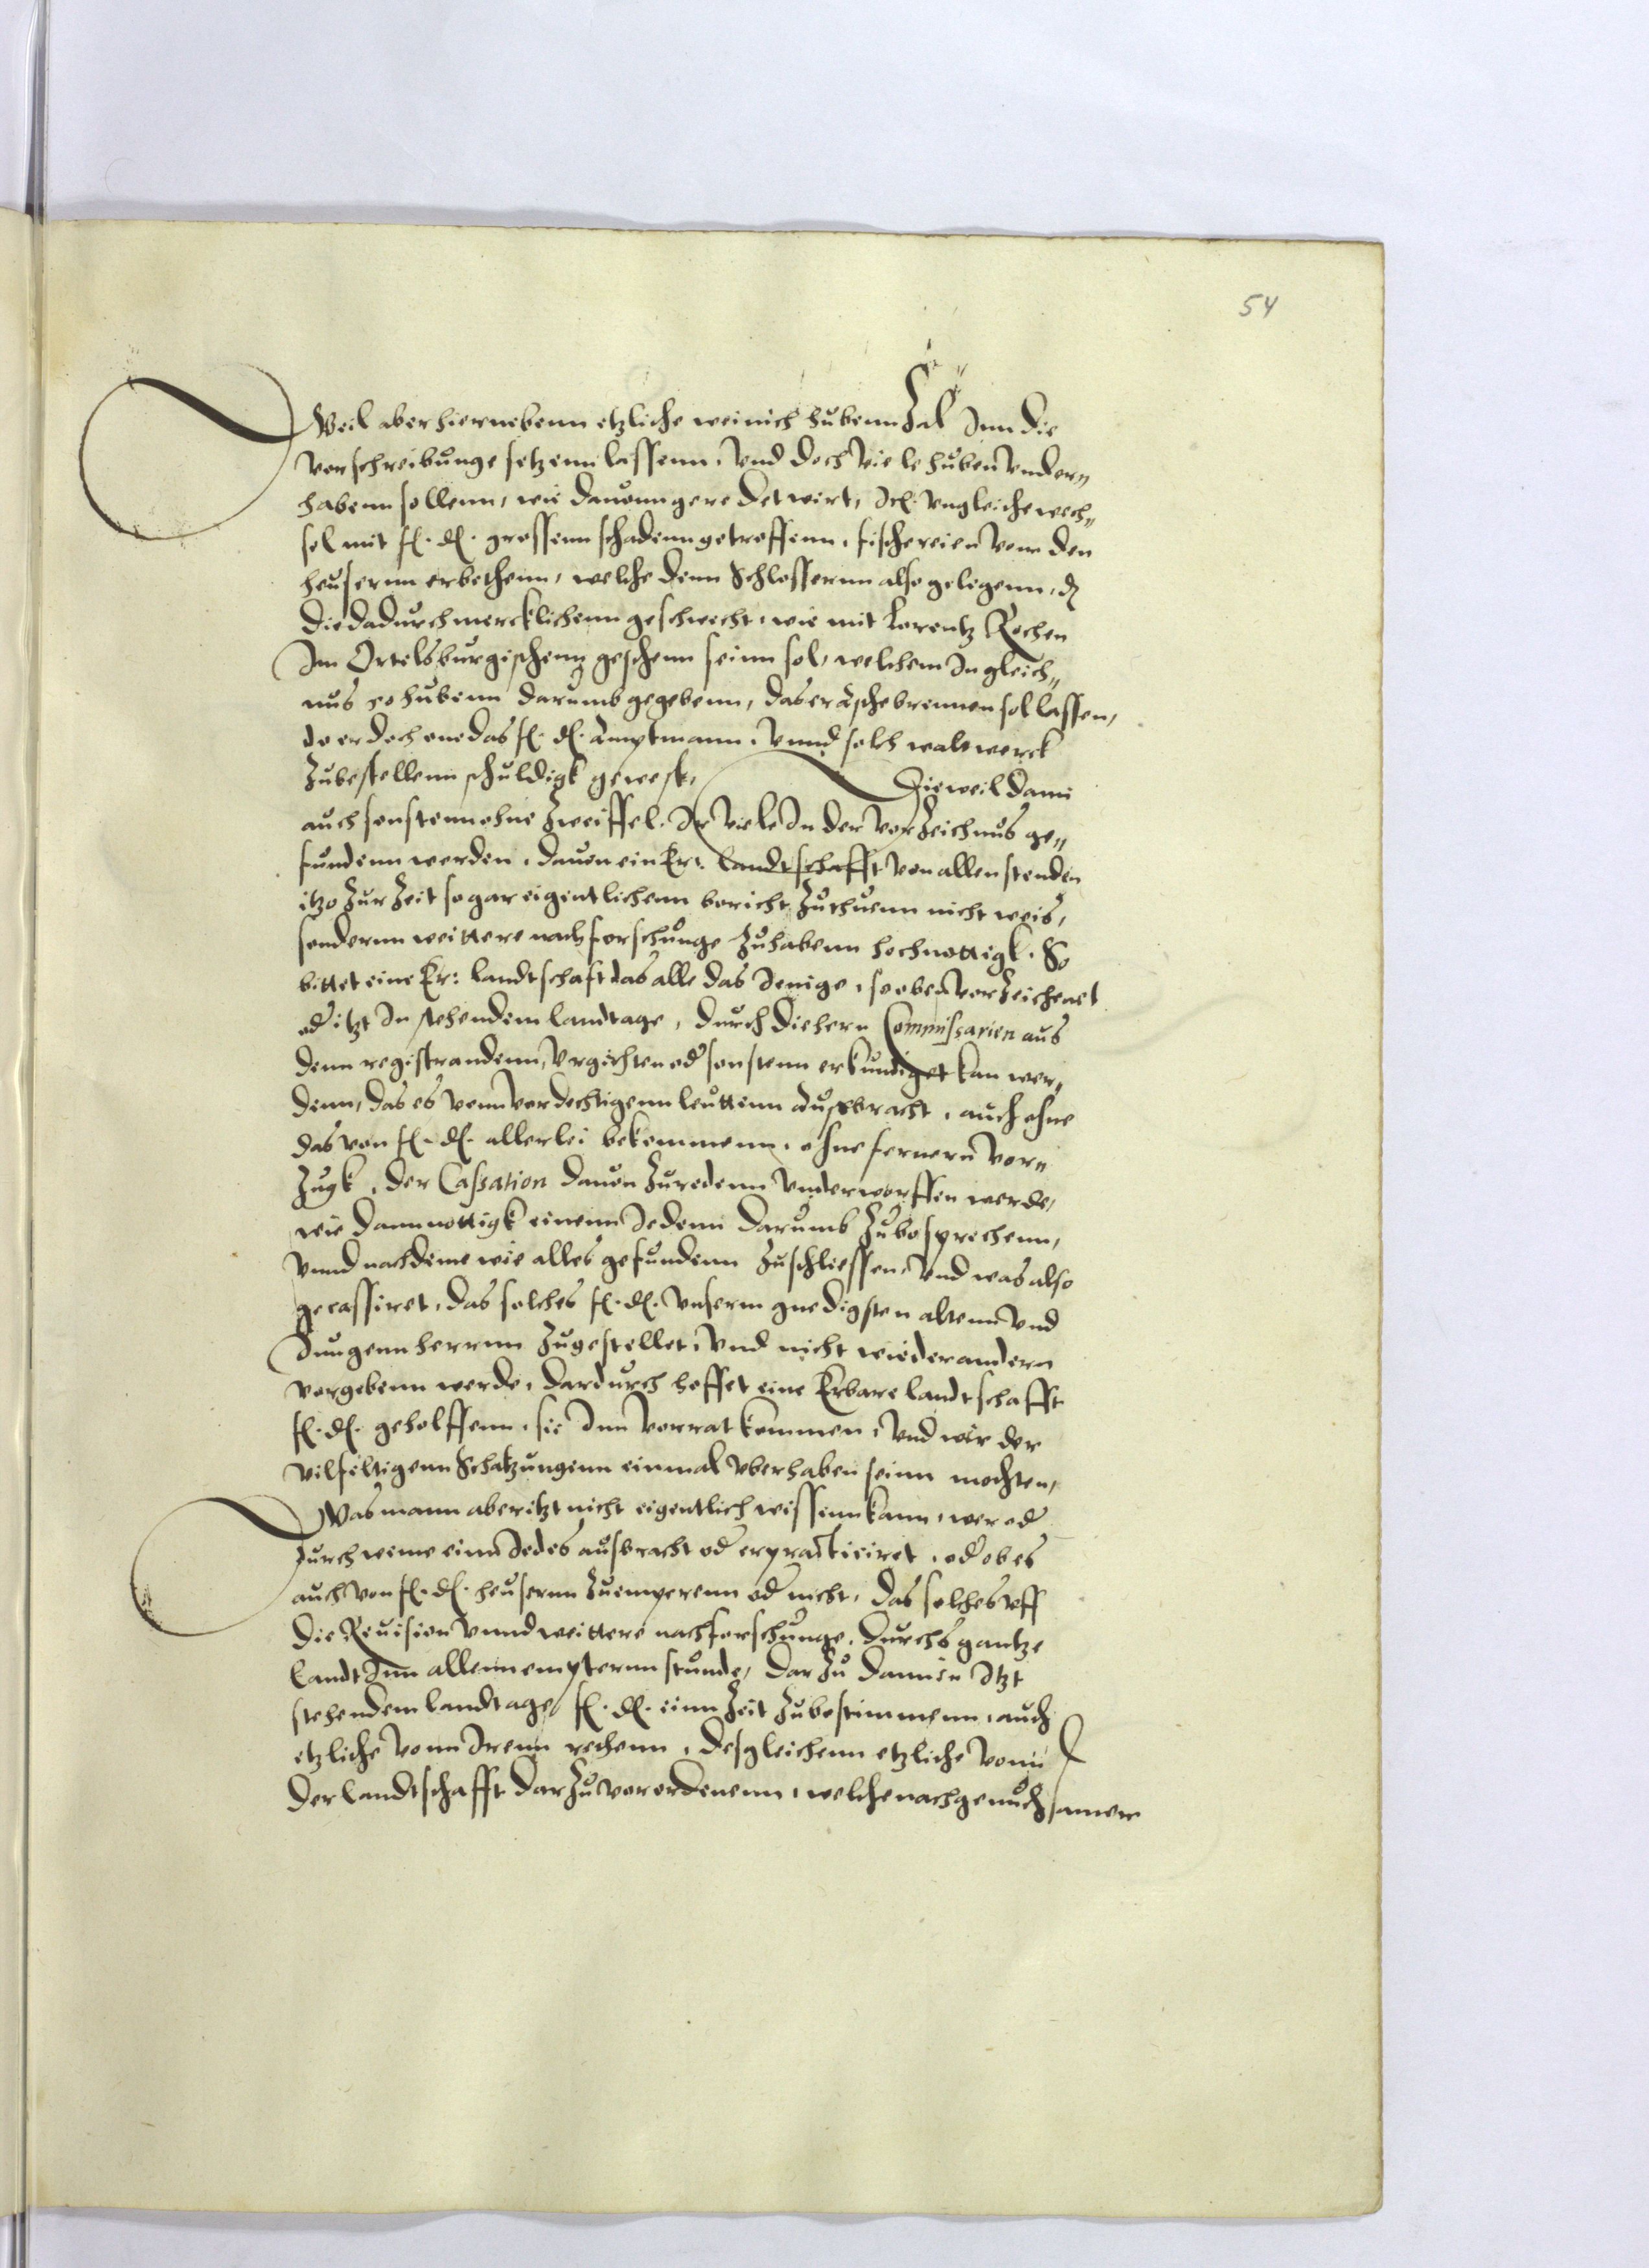 54
Weil aber hiernebenn etzliche weinich hubenn Zal Inn die
vorschreibunge setzenn lassenn, vnd doch viele huben vnder„
habenn sollenn, wie dauonn geredet wirt, Itl. vngleiche wech„
sel mit fl. dl. grossenn schadenn getroffenn, fischereien vonn den
heusernn erbethenn, welche denn Schlossernn also gelegenn, d
die dadurch mercklichenn geschwecht, wie mit Lorentz Rochen
Im Ortelsburgischenn geschenn seinn sol, welchem In gleich„
nus 20 hubenn darumb gegebenn, das er Asche brennen sol lassen,
do er doch one das fl. dl. Amptmann, vnnd solch walt werck
Zubestellenn schuldigk gewest, Dieweil dann
auch sonstenn ohne Zweiffel, Ir viele In der vorzeichnus ge„
fundenn werden, dauon ein Er: Landtschafft von allen stenden
itzo Zur Zeit so gar eigentlichenn bericht Zuthuenn nicht weis,
sondernn weittere nachforschunge Zuhabenn hochnottigk. So
bittet eine Er: Landtschaft das alle das Jenige, so oben vorzeichenet
od itzt In stehendem landtage, durch die hern Commissarien aus
denn registrandenn, vrgichten od sonstenn erkundiget kan wer„
denn, das es vonn vordechtigenn leuttenn ausbracht, auch ohne
das von fl. dl. allerlei bekommenn, ohne fernern vor„
Zugk, der Cassation dauon Zuredenn vnderworffen werde,
wie dann nottigk einenn Jedenn darumb Zubesprechenn,
vnnd nachdeme wie alles gefundenn Zuschliessen, vnd was also
gecassiret, das solches fl. dl. vnserm gnedigsten altenn vnd
Jungenn herrnn Zugestellet, vnd nicht wieder andern
vorgebenn werde, dardurch hoffet eine Erbare landtschafft
fl. dl. geholffenn, sie Inn vorrat kommen, vnd wir der
vilfeltigenn Schatzungenn einmal vberhaben seinn mochten,
Was mann aber itzt nicht eigentlich wissenn kann, wer od
durch weme einn Jedes ausbracht od erpracticiret, od ob es
auch von fl. dl. heusernn Zuemperenn od nicht, das solches vff
die Reuision vnnd weittere nachforschunge, durchs gantze
Landt Inn allenn empternn stunde, dar Zu dann in Itzt
stehendem landtage, fl. dl. einn Zeit Zubestimmenn, auch
etzliche vonn Irenn rethenn, desgleichenn etzliche vonn
der landtschafft dar Zu vorordenenn, welche nach genuchsamer